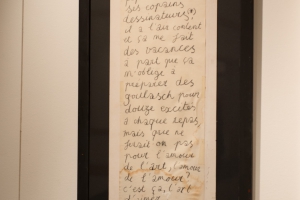 ses copains
dessinateurs,
il a l'air content
et ça me fait
des vacances
à part que ça
m'oblige à
préparer des
goulasch pour
douze excités
à chaque repas,
mais que ne
ferait on pas
pour l'amour
de l'art, l'amour
de l'amour?
c'est ça, l'art
d'aimer